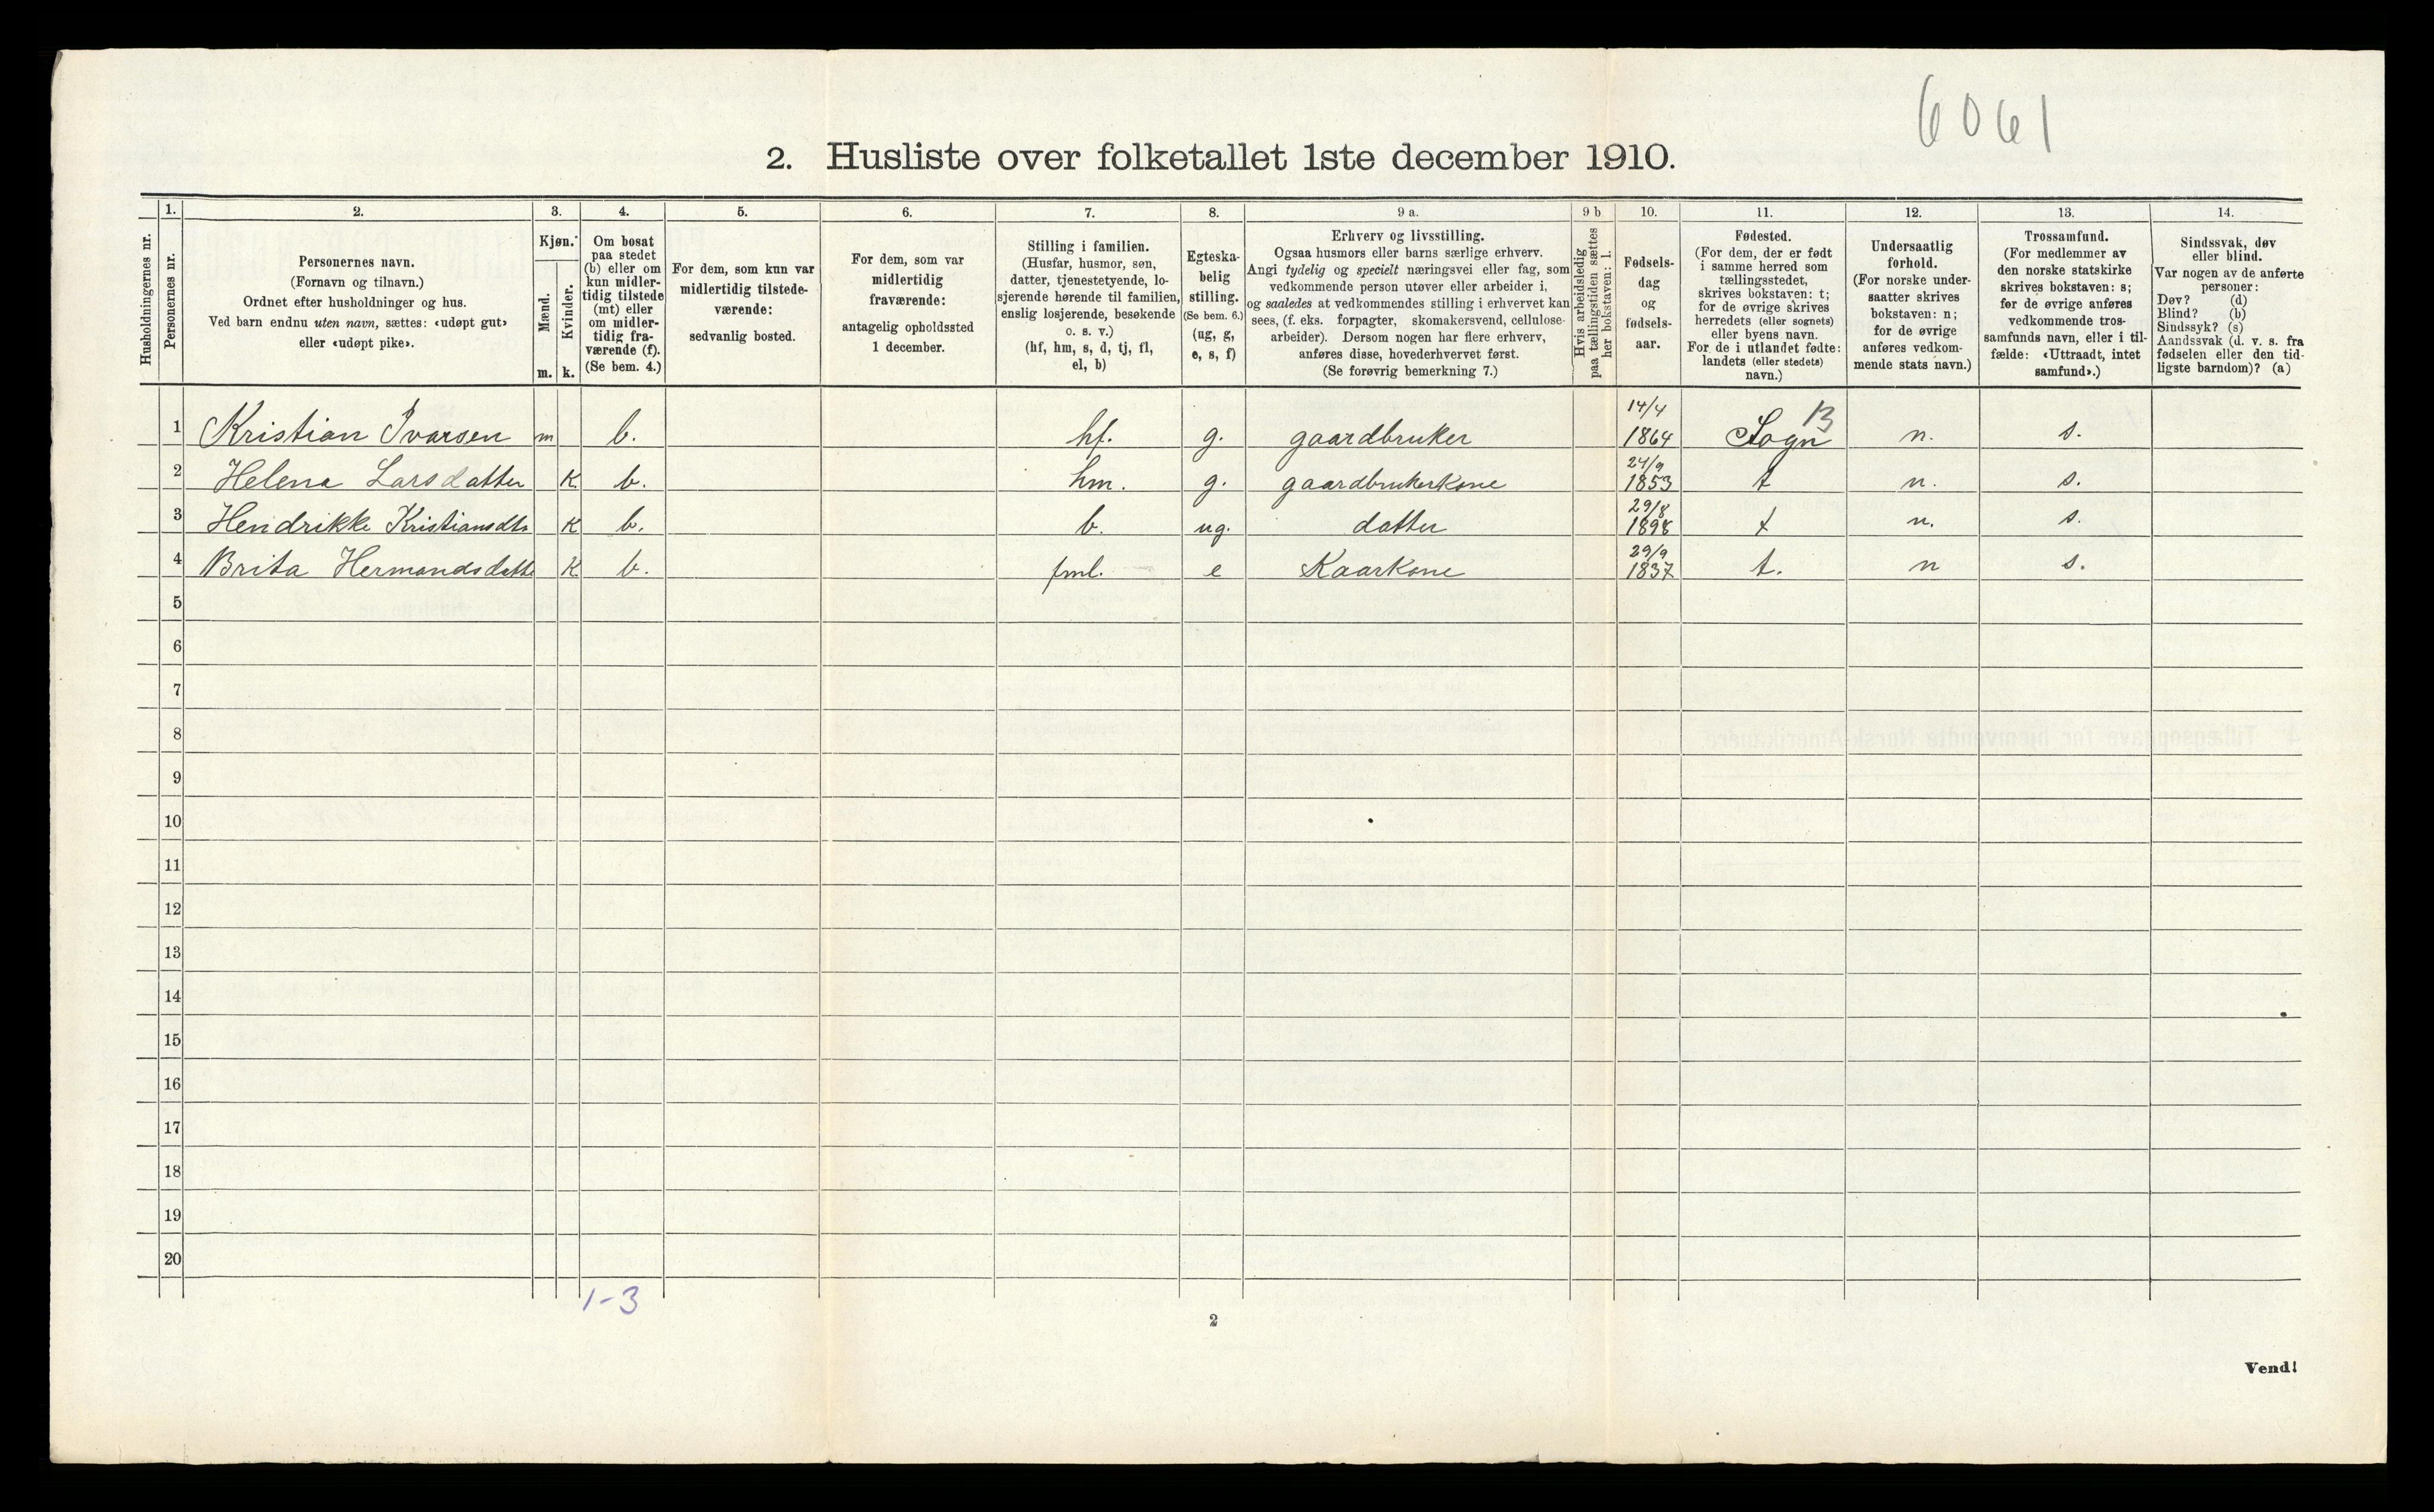 6061
2. Husliste over folketallet 1ste december 1910.
Husholdningernes nr.
1.
Personernes nr.
2.
Personernes navn.
(Fornavn og tilnavn.)
Ordnet efter husholdninger og hus.
Ved barn endnu uten navn, sættes: «udøpt gut»
eller «udøpt pike».
3.
Kjøn.
Mænd.
Kvinder.
m. k.
4.
Om bosat
paa stedet
(b) eller om
kun midler-
tidig tilstede
(mt) eller
om midler-
tidig fra-
værende (f).
(Se bem. 4.)
5.
For dem, som kun var
midlertidig tilstede-
værende:
sedvanlig bosted.
6.
For dem, som var
midlertidig
fraværende:
antagelig opholdssted
1 december.
7.
Stilling i familien.
(Husfar, husmor, søn,
datter, tjenestetyende, lo-
sjerende hørende til familien,
enslig losjerende, besøkende
o. s. v.)
(hf, hm, s, d, tj, fl,
el, b)
8.
Egteska-
belig
stilling.
(Se bem. 6.)
(ug, g,
e, s, f)
9 a.
Erhverv og livsstilling.
Ogsaa husmors eller barns særlige erhverv.
Angi tydelig og specielt næringsvei eller fag, som
vedkommende person utøver eller arbeider i,
og saaledes at vedkommendes stilling i erhvervet kan
sees, (f. eks. forpagter, skomakersvend, cellulose-
arbeider). Dersom nogen har flere erhverv,
anføres disse, hovederhvervet først.
(Se forøvrig bemerkning 7.)
9 b
Hvis arbeidsledig
paa tællingstiden sættes
her bokstaven: l.
10.
Fødsels-
dag
og
fødsels-
aar.
11.
Fødested.
(For dem, der er født
i samme herred som
tællingsstedet,
skrives bokstaven: t;
for de øvrige skrives
herredets (eller sognets)
eller byens navn.
For de i utlandet fødte:
landets (eller stedets)
navn.)
12.
Undersaatlig
forhold.
(For norske under-
saatter skrives
bokstaven: n;
for de øvrige
anføres vedkom-
mende stats navn.)
13.
Trossamfund.
(For medlemmer av
den norske statskirke
skrives bokstaven: s;
for de øvrige anføres
vedkommende tros-
samfunds navn, eller i til-
fælde: «Uttraadt, intet
samfund».)
14.
Sindssvak, døv
eller blind.
Var nogen av de anførte
personer:
Døv? (d)
Blind? (b)
Sindssyk? (s)
Aandssvak (d. v. s. fra
fødselen eller den tid-
ligste barndom)? (a)
1 Kristian Ivarsen m b. hf. g. gaardbruker 14/4 1864 Sogn 13 n. s.
2 Helena Larsdatter K b. hm. g. gaardbrukerkone 24/9 1853 t n. s.
3 Hendrikke Kristiansdtr K b. b. ug. datter 29/8 1898 t n. s.
4 Brita Hermandsdatte K b. fml. e Kaarkone 29/9 1837 t. n s.
5
6
7
8
9
10
11
12
13
14
15
16
17
18
19
20
1-3
2
Vend!